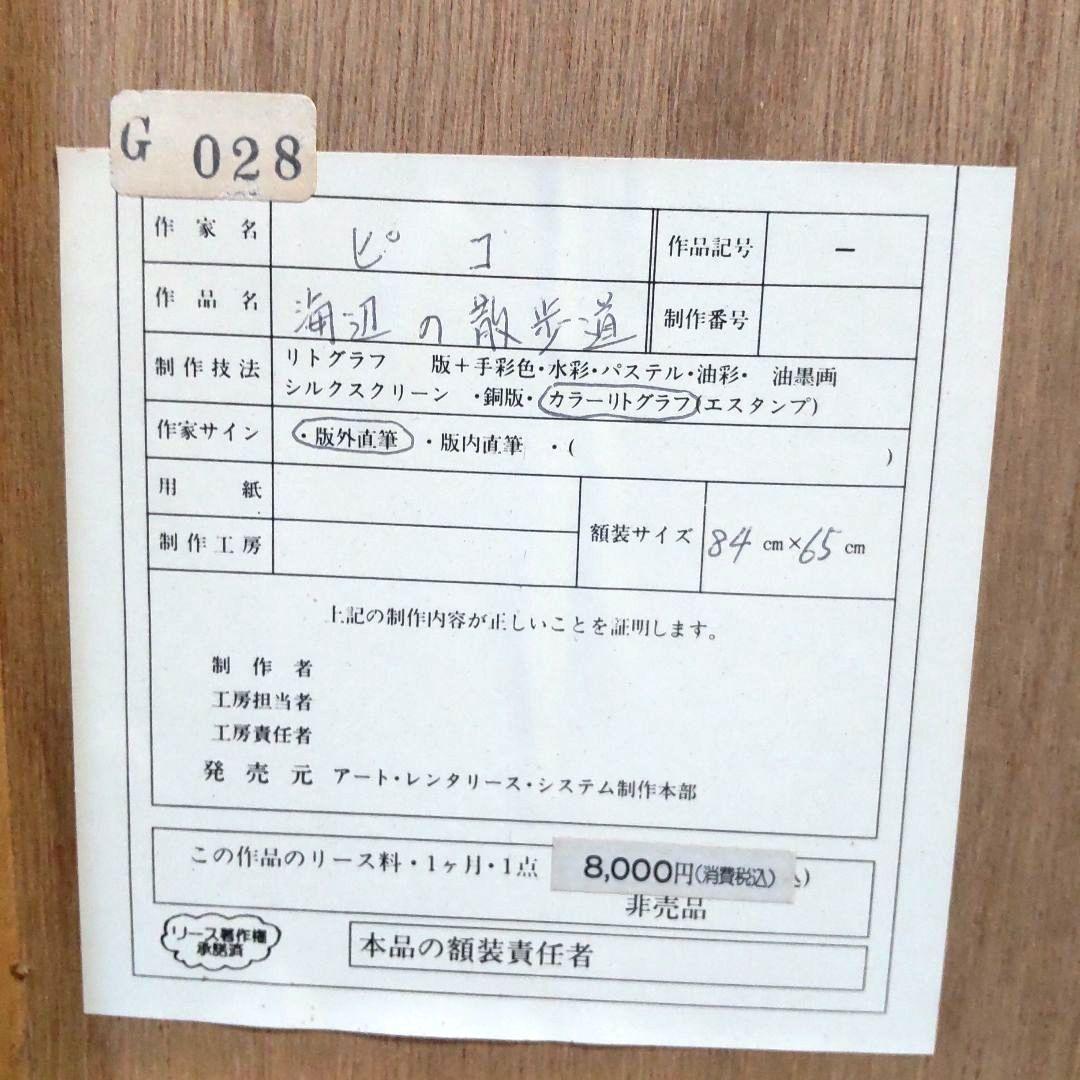 G 028
作家名 ピコ 作品記号 ー
作品名 海辺の散歩道 制作番号
制作技法 リトグラフ 版＋手彩色・水彩・パステル・油彩・ 油墨画
シルクスクリーン ・銅版・カラーリトグラフ(エスタンプ)
作家サイン ・版外直筆 ・版内直筆 ・( )
用紙
制作工房 額装サイズ 84cm×65cm
上記の制作内容が正しいことを証明します。
制作者
工房担当者
工房責任者
発売元 アート・レンタリース・システム制作本部
この作品のリース料・1ヶ月・1点 8,000円(消費税込) )
非売品
リース著作権
承諾済
本品の額装責任者